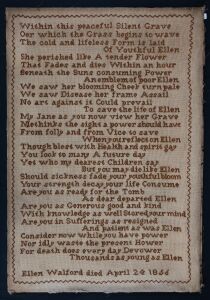 Within this peaceful Silent Grave
Oer which the Grass begins to wave
The cold and lifeless Form is laid
Of Youthful Ellen
She perished like A tender Flower
That Fades and dies Within an hour
Beneath the Suns consuming Power
An emblem of poor Ellen
We saw her blooming Cheek turn pale
We saw Disease her frame Assail
No art against it Could prevail
To save the life of Ellen
My Jane as you now view her Grave
Methinks the sight a power should have
From folly and from Vice to save
When you reflect on Ellen
Though blest with Health and spirits gay
You look to many A future day
Yet who my dearest Children say
But you may die like Ellen
Should sickness fade your youthful bloom
Your strength decay your life Consume
Are you as ready for the Tomb
As dear departed Ellen
Are you as Generous good and kind
With knowledge as well Stored your mind
Are you in Sufferings as resigned
And patient as was Ellen
Consider now while you have power
Nor idly waste the present Hower
For death does every day Devower
Thousands as young as Ellen
Ellen Walford died April 24